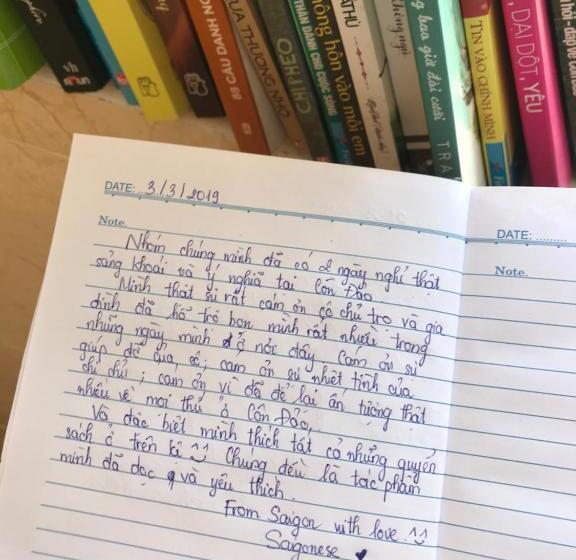 83 CÂU DANH NGÔN
ƯA THƯƠNG NHO
CHI HEO
THÂN DÀNH CHO CUỘC SỐNG
hông hôn vào môi em
THỦ
không ngủ
ng bao giờ đòi cưới
TRA
TIN VÀO CHÍNH MÌNH
, DẠI DỘT, YÊU
hỏi - đáp về Co
DATE: 3/3/2019
Note.
Nhóm chúng mình đã có 2 ngày nghỉ thật
sảng khoái và ý nghĩa tại Côn Đảo.
Mình thật sự rất cảm ơn cô chủ trọ và gia
đình đã hỗ trợ bọn mình rất nhiều trong
những ngày mình ở nơi đây. Cảm ơn sự
giúp đỡ của cô; cảm ơn sự nhiệt tình của
chị chủ; cảm ơn vì đã để lại ấn tượng thật
nhiều về mọi thứ ở Côn Đảo,
Và đặc biệt mình thích tất cả những quyển
sách ở trên kệ ^^ Chúng đều là tác phẩm
mình đã đọc và yêu thích.
From Saigon with love ^^
Saigonese ♥
DATE: ........
Note.